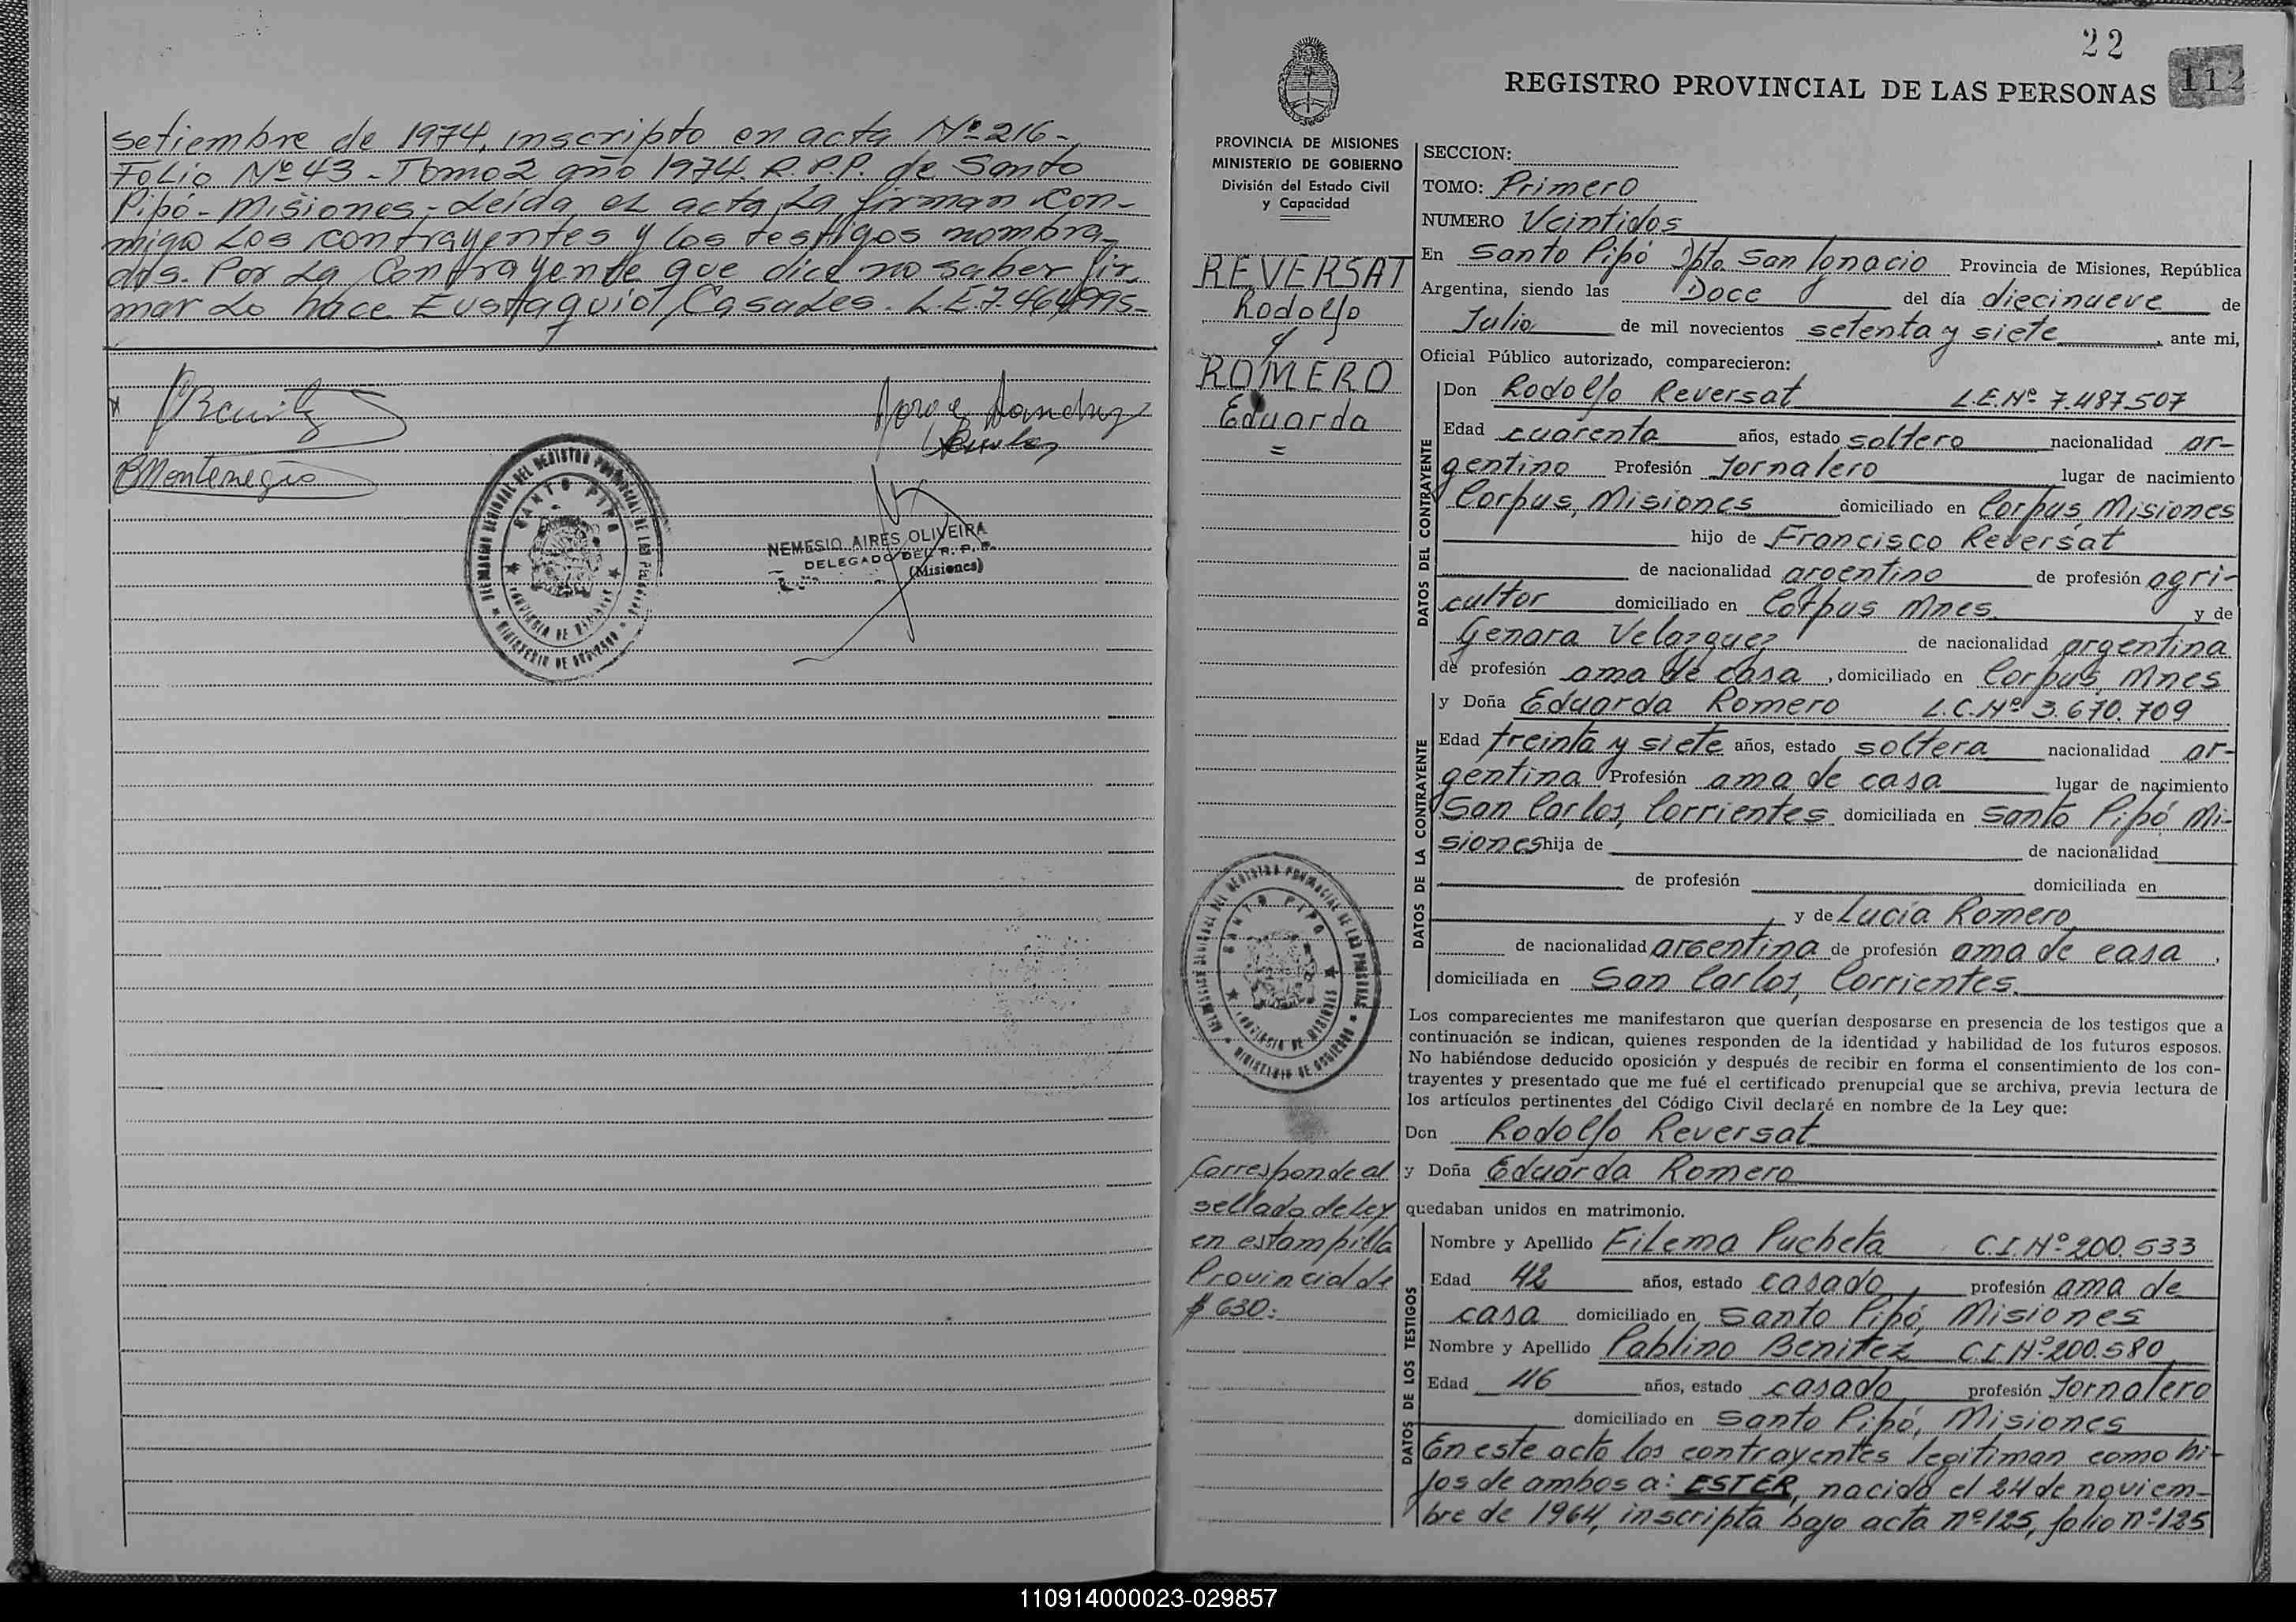 setiembre de 1974, inscripto en acta Nº 216-
Folio Nº 43 - Tomo 2 año 1974. R.P.P. de Santo
Pipó - Misiones - Leída el acta, la firman con-
migo los contrayentes y los testigos nombra-
dos. Por la Contrayente que dice no saber fir-
mar lo hace Eustaquio Casales. L.E. 7.464.995-
Montenegro
SANTO PIPO
NEMESIO AIRES OLIVEIRA
DELEGADO DEL R. P. P.
(Misiones)
22
112
REGISTRO PROVINCIAL DE LAS PERSONAS
PROVINCIA DE MISIONES
MINISTERIO DE GOBIERNO
División del Estado Civil
y Capacidad
REVERSAT
Rodolfo
y
ROMERO
Eduarda
=
SANTO PIPO
Corresponde al
sellado de ley
en estampilla
Provincial de
$ 630.-
SECCION:
TOMO: Primero
NUMERO Veintidos
En Santo Pipó Dpto San Ignacio Provincia de Misiones, República
Argentina, siendo las Doce del día diecinueve de
Julio de mil novecientos setenta y siete, ante mi,
Oficial Público autorizado, comparecieron:
DATOS DEL CONTRAYENTE
Don Rodolfo Reversat L.E. Nº 7.487.507
Edad cuarenta años, estado soltero nacionalidad ar-
gentino Profesión Jornalero lugar de nacimiento
Corpus, Misiones domiciliado en Corpus, Misiones
hijo de Francisco Reversat
de nacionalidad argentino de profesión agri-
cultor domiciliado en Corpus Mnes. y de
Genara Velazquez de nacionalidad argentina
de profesión ama de casa, domiciliado en Corpus, Mnes
DATOS DE LA CONTRAYENTE
y Doña Eduarda Romero L.C. Nº 3.670.709
Edad treinta y siete años, estado soltera nacionalidad ar-
gentina Profesión ama de casa lugar de nacimiento
San Carlos, Corrientes domiciliada en Santo Pipó Mi-
siones hija de de nacionalidad
de profesión domiciliada en
y de Lucía Romero
de nacionalidad argentina de profesión ama de casa,
domiciliada en San Carlos, Corrientes.
Los comparecientes me manifestaron que querían desposarse en presencia de los testigos que a
continuación se indican, quienes responden de la identidad y habilidad de los futuros esposos.
No habiéndose deducido oposición y después de recibir en forma el consentimiento de los con-
trayentes y presentado que me fué el certificado prenupcial que se archiva, previa lectura de
los artículos pertinentes del Código Civil declaré en nombre de la Ley que:
Don Rodolfo Reversat
y Doña Eduarda Romero
quedaban unidos en matrimonio.
DATOS DE LOS TESTIGOS
Nombre y Apellido Filema Pucheta C.I. Nº 200.533
Edad 42 años, estado casado profesión ama de
casa domiciliado en Santo Pipó, Misiones
Nombre y Apellido Pablino Benitez C.I. Nº 200.580
Edad 46 años, estado casado profesión Jornalero
domiciliado en Santo Pipó, Misiones
En este acto los contrayentes legitiman como hi-
jos de ambos a: ESTER, nacida el 24 de noviem-
bre de 1964, inscripta bajo acta nº 125, folio nº 125
110914000023-029857